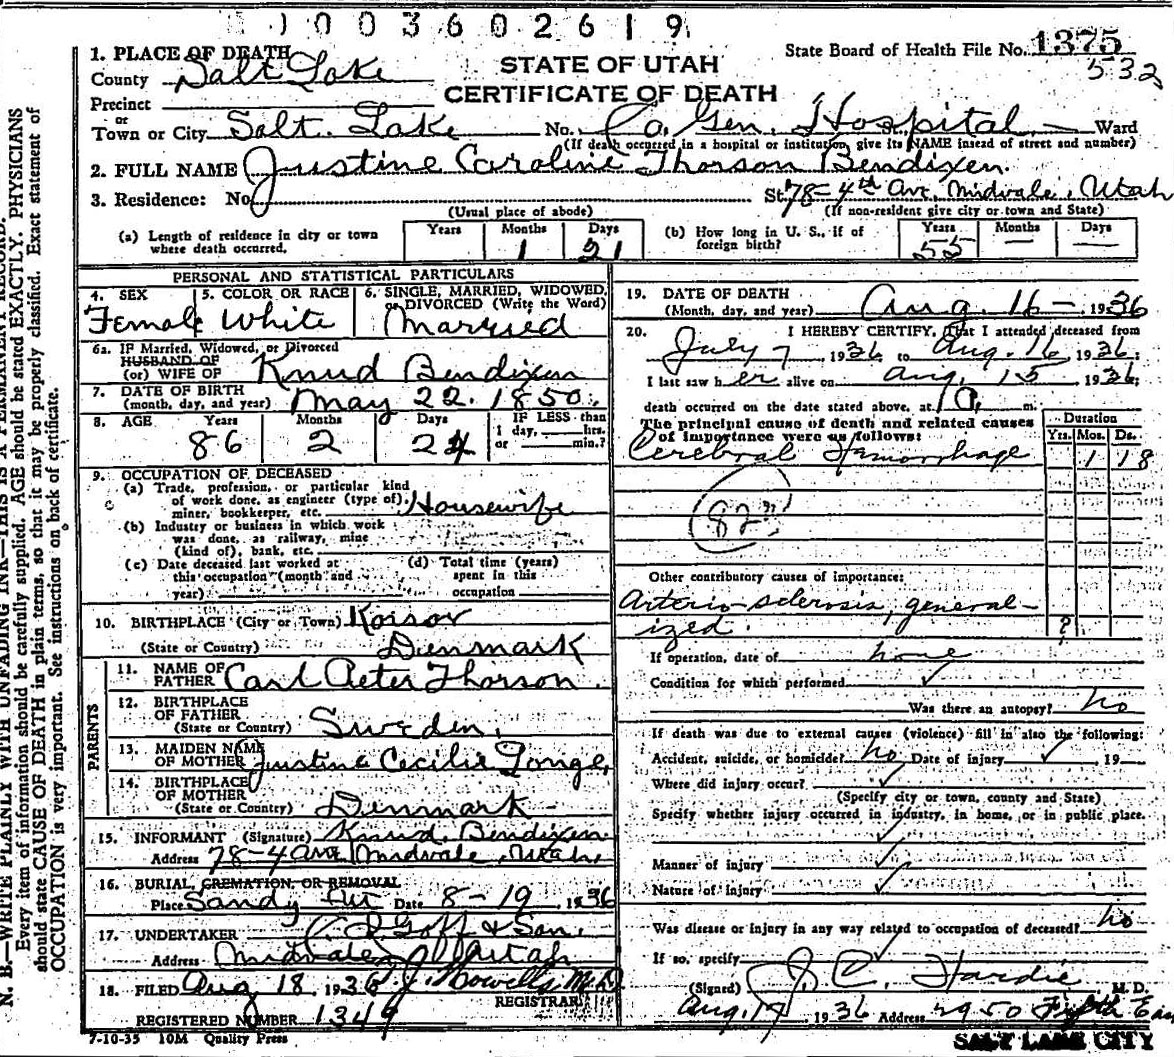 1003602619
1. PLACE OF DEATH
State Board of Health File No. 1375
532
County Salt Lake
STATE OF UTAH
CERTIFICATE OF DEATH
Precinct
or
Town or City Salt Lake No. Co. Gen. Hospital St. — Ward
(If death occurred in a hospital or institution, give its NAME insead of street and number)
2. FULL NAME Justine Caroline Thorson Bendixen
3. Residence: No. St. 78-4th Ave. Midvale, Utah
(Usual place of abode) (If non-resident give city or town and State)
(a) Length of residence in city or town where death occurred. Years Months 1 Days 21
(b) How long in U. S., if of foreign birth? Years 55 Months — Days —
PERSONAL AND STATISTICAL PARTICULARS
4. SEX Female
5. COLOR OR RACE White
6. SINGLE, MARRIED, WIDOWED, or DIVORCED (Write the Word) Married
6a. IF Married, Widowed, or Divorced
HUSBAND OF
(or) WIFE OF Knud Bendixen
7. DATE OF BIRTH
(month, day, and year) May 22. 1850.
8. AGE Years 86 Months 2 Days 24 IF LESS than 1 day, hrs. or min.?
9. OCCUPATION OF DECEASED
(a) Trade, profession, or particular kind
of work done, as engineer (type of),
miner, bookkeeper, etc. Housewife
(b) Industry or business in which work
was done, as railway, mine
(kind of), bank, etc.
(c) Date deceased last worked at
this occupation (month and
year)
(d) Total time (years)
spent in this
occupation
10. BIRTHPLACE (City or Town) Korsor
(State or Country) Denmark
PARENTS
11. NAME OF
FATHER Carl Peter Thorson.
12. BIRTHPLACE
OF FATHER
(State or Country) Sweden.
13. MAIDEN NAME
OF MOTHER Justine Cecilie
14. BIRTHPLACE
OF MOTHER
(State or Country) Denmark
15. INFORMANT (Signature) Knud Bendixen
Address 78-4 Ave Midvale, Utah.
16. BURIAL, CREMATION, OR REMOVAL
Place Sandy Date 8-19 1936
17. UNDERTAKER Goff & Son.
Address Midvale Utah
18. FILED Aug 18 1936 M.D.
REGISTRAR
REGISTERED NUMBER 1349
7-10-35 10M Quality Press
19. DATE OF DEATH
(Month, day, and year) Aug. 16 — 1936
20. I HEREBY CERTIFY, That I attended deceased from
July 7 1936 to Aug. 16 1936;
I last saw her alive on Aug. 15 1936;
death occurred on the date stated above, at m.
The principal cause of death and related causes
of importance were as follows:
Duration
Yrs. Mos. Ds.
Cerebral Hemorrhage 1 18
82
Other contributory causes of importance:
Arterio-sclerosis, general-
ized. ?
If operation, date of none
Condition for which performed
Was there an autopsy? no
If death was due to external causes (violence) fill in also the following:
Accident, suicide, or homicide? no Date of injury , 19
Where did injury occur?
(Specify city or town, county and State)
Specify whether injury occurred in industry, in home, or in public place.
Manner of injury
Nature of injury
Was disease or injury in any way related to occupation of deceased? no
If so, specify
(Signed) J. C. Hardie M. D.
Aug. 17 1936 Address 2950 Fifth East
SALT LAKE CITY
N. B.—WRITE PLAINLY WITH UNFADING INK—THIS IS A PERMANENT RECORD.
Every item of information should be carefully supplied. AGE should be stated EXACTLY. PHYSICIANS
should state CAUSE OF DEATH in plain terms, so that it may be properly classified. Exact statement of
OCCUPATION is very important. See instructions on back of certificate.